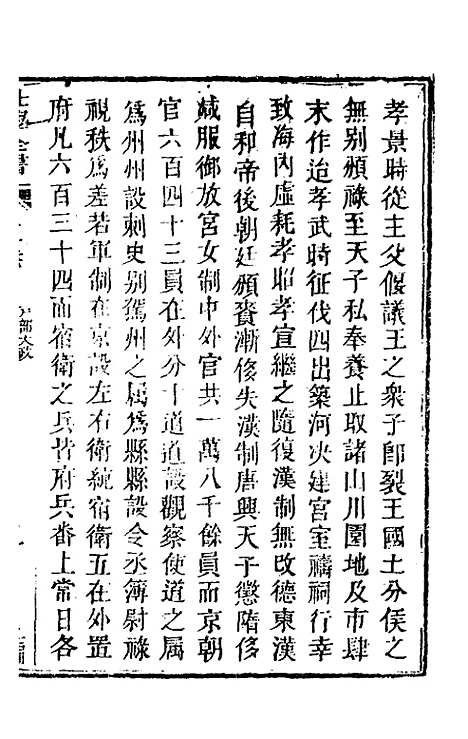 孝景時從主父偃議王之衆子卽裂王國土分侯之
無别頒祿至天子私奉養止取諸山川園地及市肆
末作迨孝武時征伐四出築河决建宮室禱祠行幸
致海內虛耗孝昭孝宣繼之隨復漢制無改德東漢
自和帝後朝廷頒賚漸侈失漢制唐興天子懲隋侈
減服御放宮女制中外官共一萬八千餘員而京朝
官六百四十三員在外分十道道設觀察使道之屬
爲州州設刺史别駕州之屬爲縣縣設令丞簿尉祿
視秩爲差若軍制在京設左右衛統宿衛五在外置
府凡六百三十四而宿衛之兵皆府兵番上常日各
戶部大政